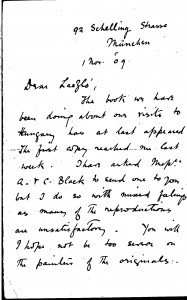 92 Schelling Strasse
München
1 Nov. '09
Dear Laszló,
The book we have
been doing about our visits to
Hungary has at last appeared
The first copy reached me last
week. I have asked Messrs
A. & C. Black to send one to you
but I do so with mixed feelings
as many of the reproductions
are unsatisfactory. You will
I hope not be too severe on
the painter of the originals.